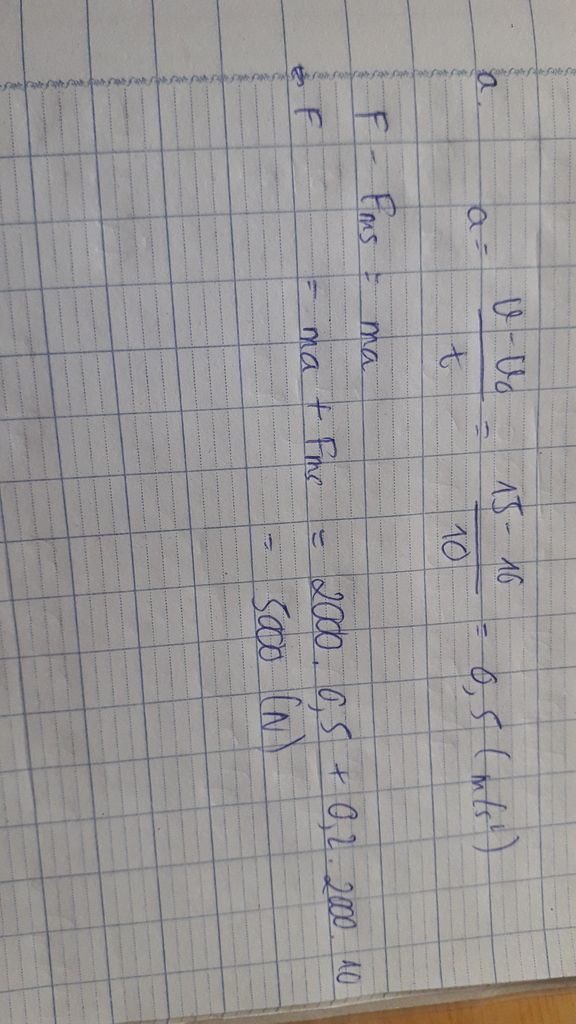 a.
a = (v - v₀)/t = (15 - 10)/10 = 0,5 (m/s²)
F - Fms = ma
⇔ F = ma + Fms = 2000. 0,5 + 0,2. 2000. 10
= 5000 (N)